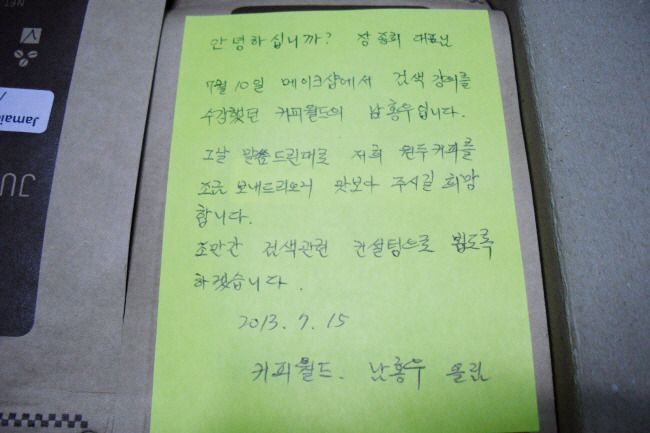 안녕하십니까? 장종희 대표님
7월 10일 메이크샵에서 검색강의를
수강했던 커피월드의 남홍우입니다.
그날 말씀드린대로 저희 원두커피를
조금 보내드리오니 맛보아 주시길 희망
합니다.
조만간 검색관련 컨설팅으로 뵙도록
하겠습니다.
2013. 7. 15
커피월드. 남홍우 올림
NET
Jamai
JU